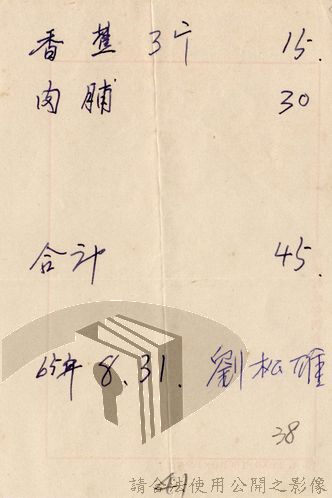 香蕉 3斤 15.
肉脯 30
合計 45.
65年 8.31. 劉松雄
38
41
請合法使用公開之影像